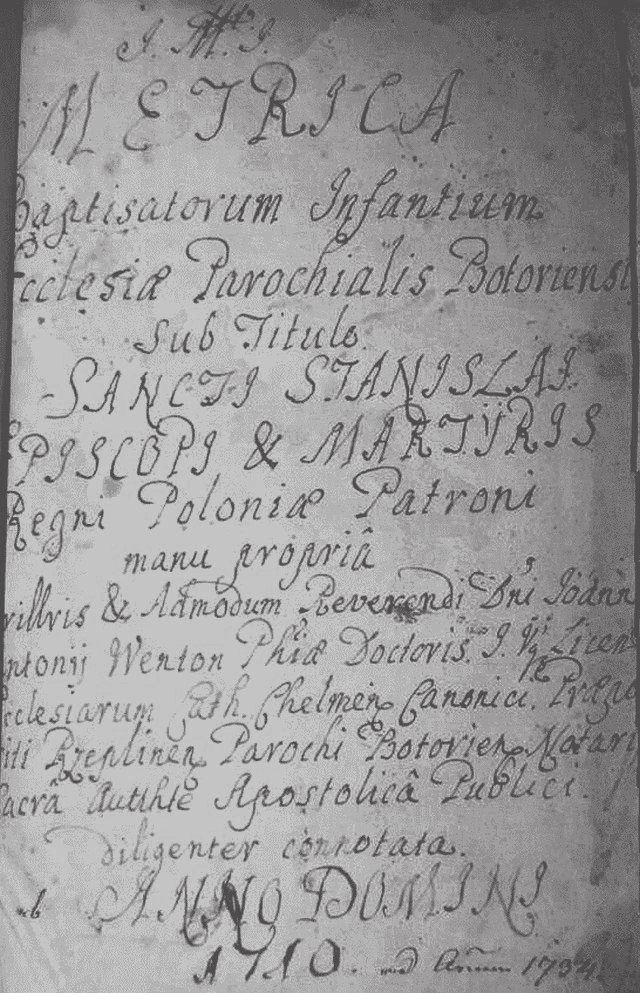 J. M. J.
METRICA
Baptisatorum Infantium
Ecclesiæ Parochialis Botoriensi
Sub Titulo
SANCTI STANISLAI
EPISCOPI & MARTYRIS
Regni Poloniæ Patroni
manu propriâ
rillris & Admodum Reverendi Dni Joann
ntonij Wenton Phiæ Doctoris. J. V. Licen
cclesiarum Cath. Chelmen Canonici. Præpo
iti Rzeplinen Parochi Botorien Notarii
sacrâ Autthte Apostolicâ Publici.
diligenter connotata.
ab ANNO DOMINI
1710. ad Annum 1734